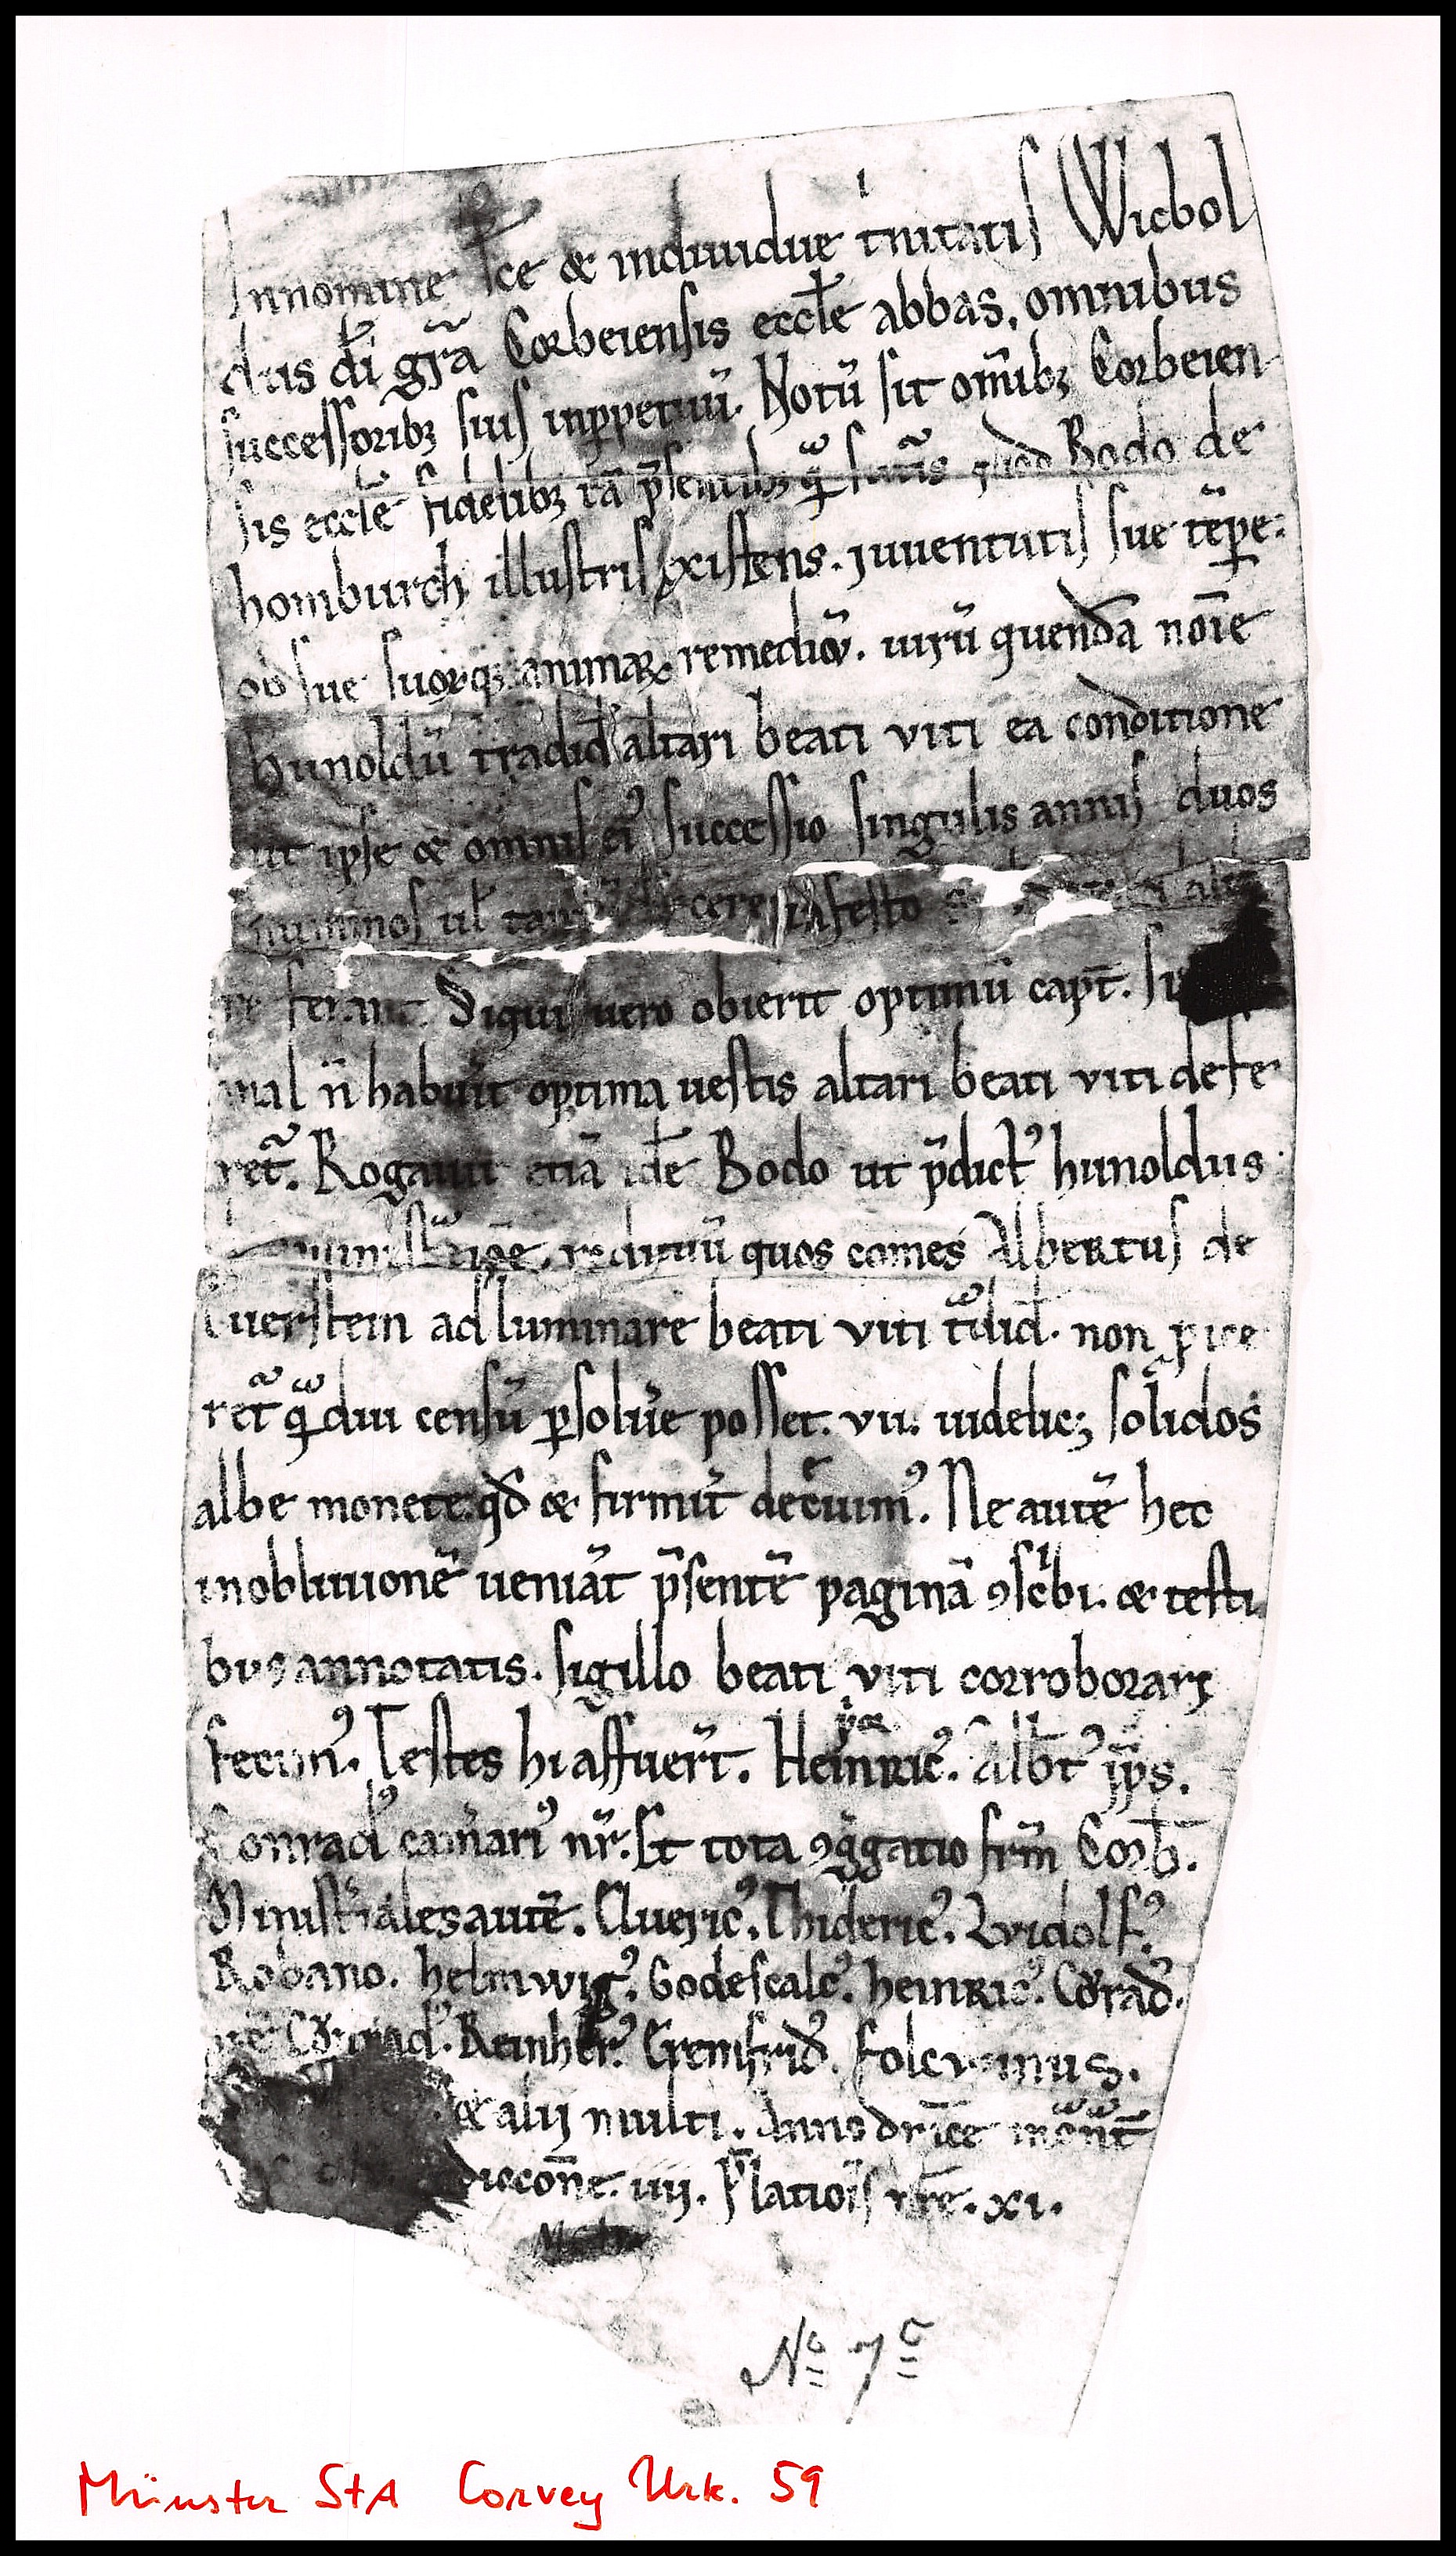 Innomine sce & indiuidue t'nitatis Wicbol
dus di gr̃a Corbeiensis eccl̃e abbas. omnibus
successorib; suis inꝑpetuũ. Notũ sit om̃ib; Corbeien
sis eccl̃e fidelib; tã p̃sentib; q̃ꝫ futu᷒is quod Bodo de
homburch illustris existens. juuentutis sue tẽꝑe.
ob sue suorq; animaꝝ remediũ. uirũ quendã noĩe
hunoldũ tradid altari beati viti ea conditione
ut ipse & omnis ei᷒ successio singulis annis duos
nummos ul̃ cere in festo
ferant. Siquis uero obierit optimũ capt̃.
mal ñ habuit optima uestis altari beati viti defe
ret᷑. Rogauit etiã idẽ Bodo ut p̃dict᷒ hunoldus
quos comes Albertus de
Euerstein ad luminare beati viti t̃did. non
ret᷑ q̃diu censũ ꝑsolu̾e posset. vii. uidelic; solidos
albe monete. qđ & firmit̾ dec̾uim᷒. Ne autẽ hec
inobliuionẽ ueniãt p̃sentẽ paginã ꝯscⁱbi. & testi
bus annotatis. sigillo beati viti corroborari
fecim᷒. Testes hi affuer̃t. Heinric᷒. Alb̃t᷒ p̃p̃s.
Conrad᷒ cam̾ari᷒ nr̃. Et tota ꝯg̾gatio fr̃m Corb̃.
Minist̾iales autẽ. Aueric᷒. Thideric᷒. Luidolf᷒.
Rabano. helmwig᷒. Godescalc᷒. heinric᷒. Cõrad᷒.
Cõrad᷒. Reinher᷒. Gremfrid᷒. folcvinus.
& alij multi. Anno dn̄ice
iiij. P̃latiõis nr̃e. xi.
Nº 7 c
Münster StA Corvey Urk. 59